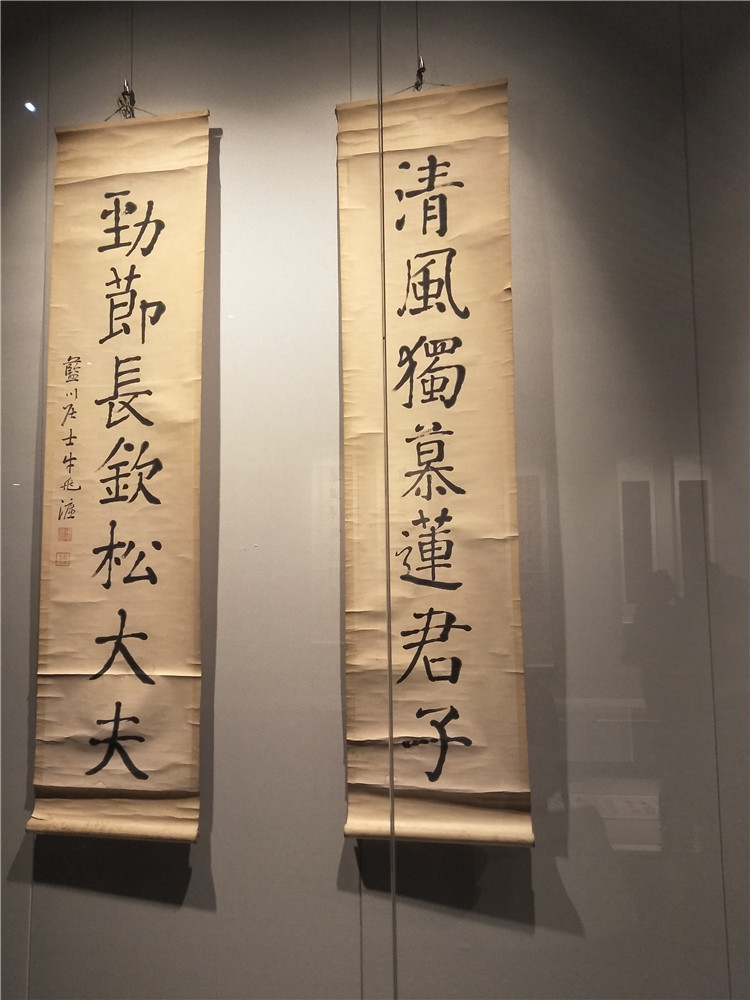 清風獨慕蓮君子
勁節長欽松大夫
藍川居士牛兆濂